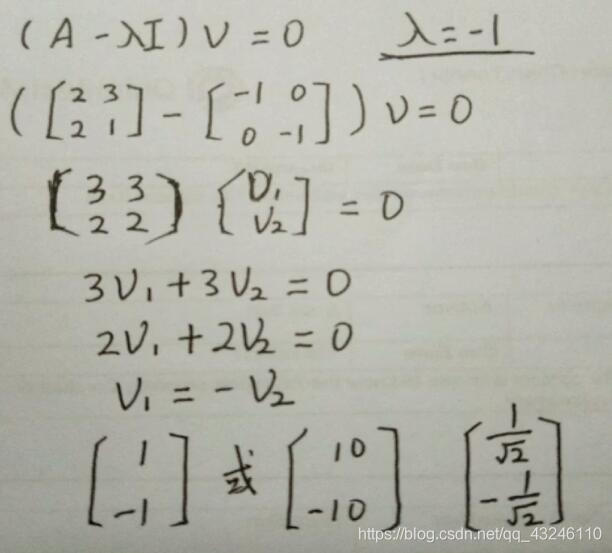 (A - λI) v = 0   λ = -1
([2 3; 2 1] - [-1 0; 0 -1]) v = 0
[3 3; 2 2] [v₁; v₂] = 0
3v₁ + 3v₂ = 0
2v₁ + 2v₂ = 0
v₁ = - v₂
[1; -1] 或 [10; -10] [1/√2; -1/√2]
https://blog.csdn.net/qq_43246110